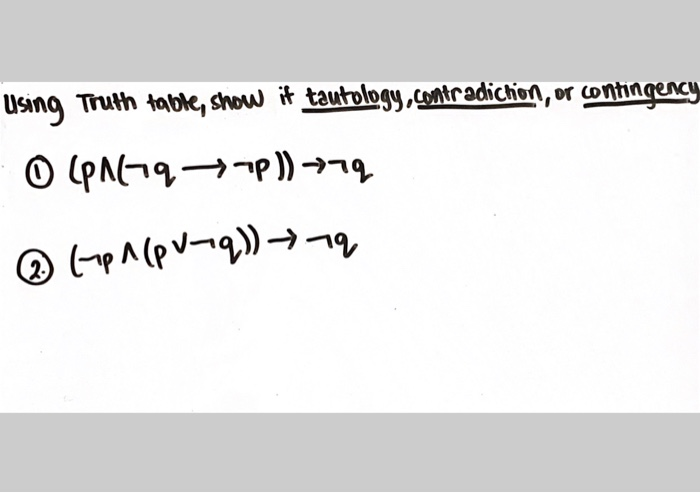 Using Truth table, show if tautology, contradiction, or contingency
① (p∧(¬q→¬p))→¬q
② (¬p∧(p∨¬q))→¬q